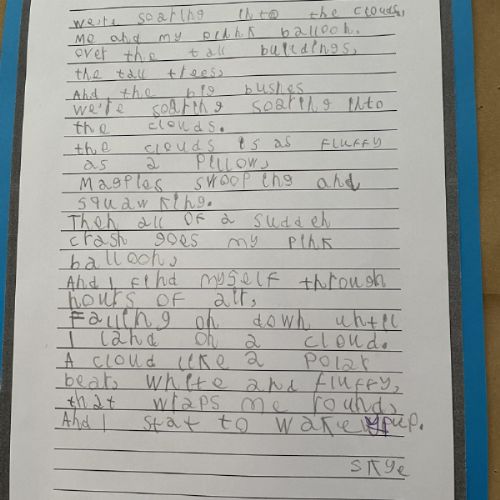 we're soaring into the clouds,
me and my pink balloon.
over the tall buildings,
the tall trees,
And the big bushes
we're soaring soaring into
the clouds.
the clouds is as fluffy
as a pillow,
Magpies swooping and
squawking.
Then all of a sudden
crash goes my pink
balloon,
And I find myself through
hours of air,
Falling on down until
I land on a cloud.
A cloud like a polar
bear, white and fluffy,
that wraps me round,
And I stat to wake up.
skye